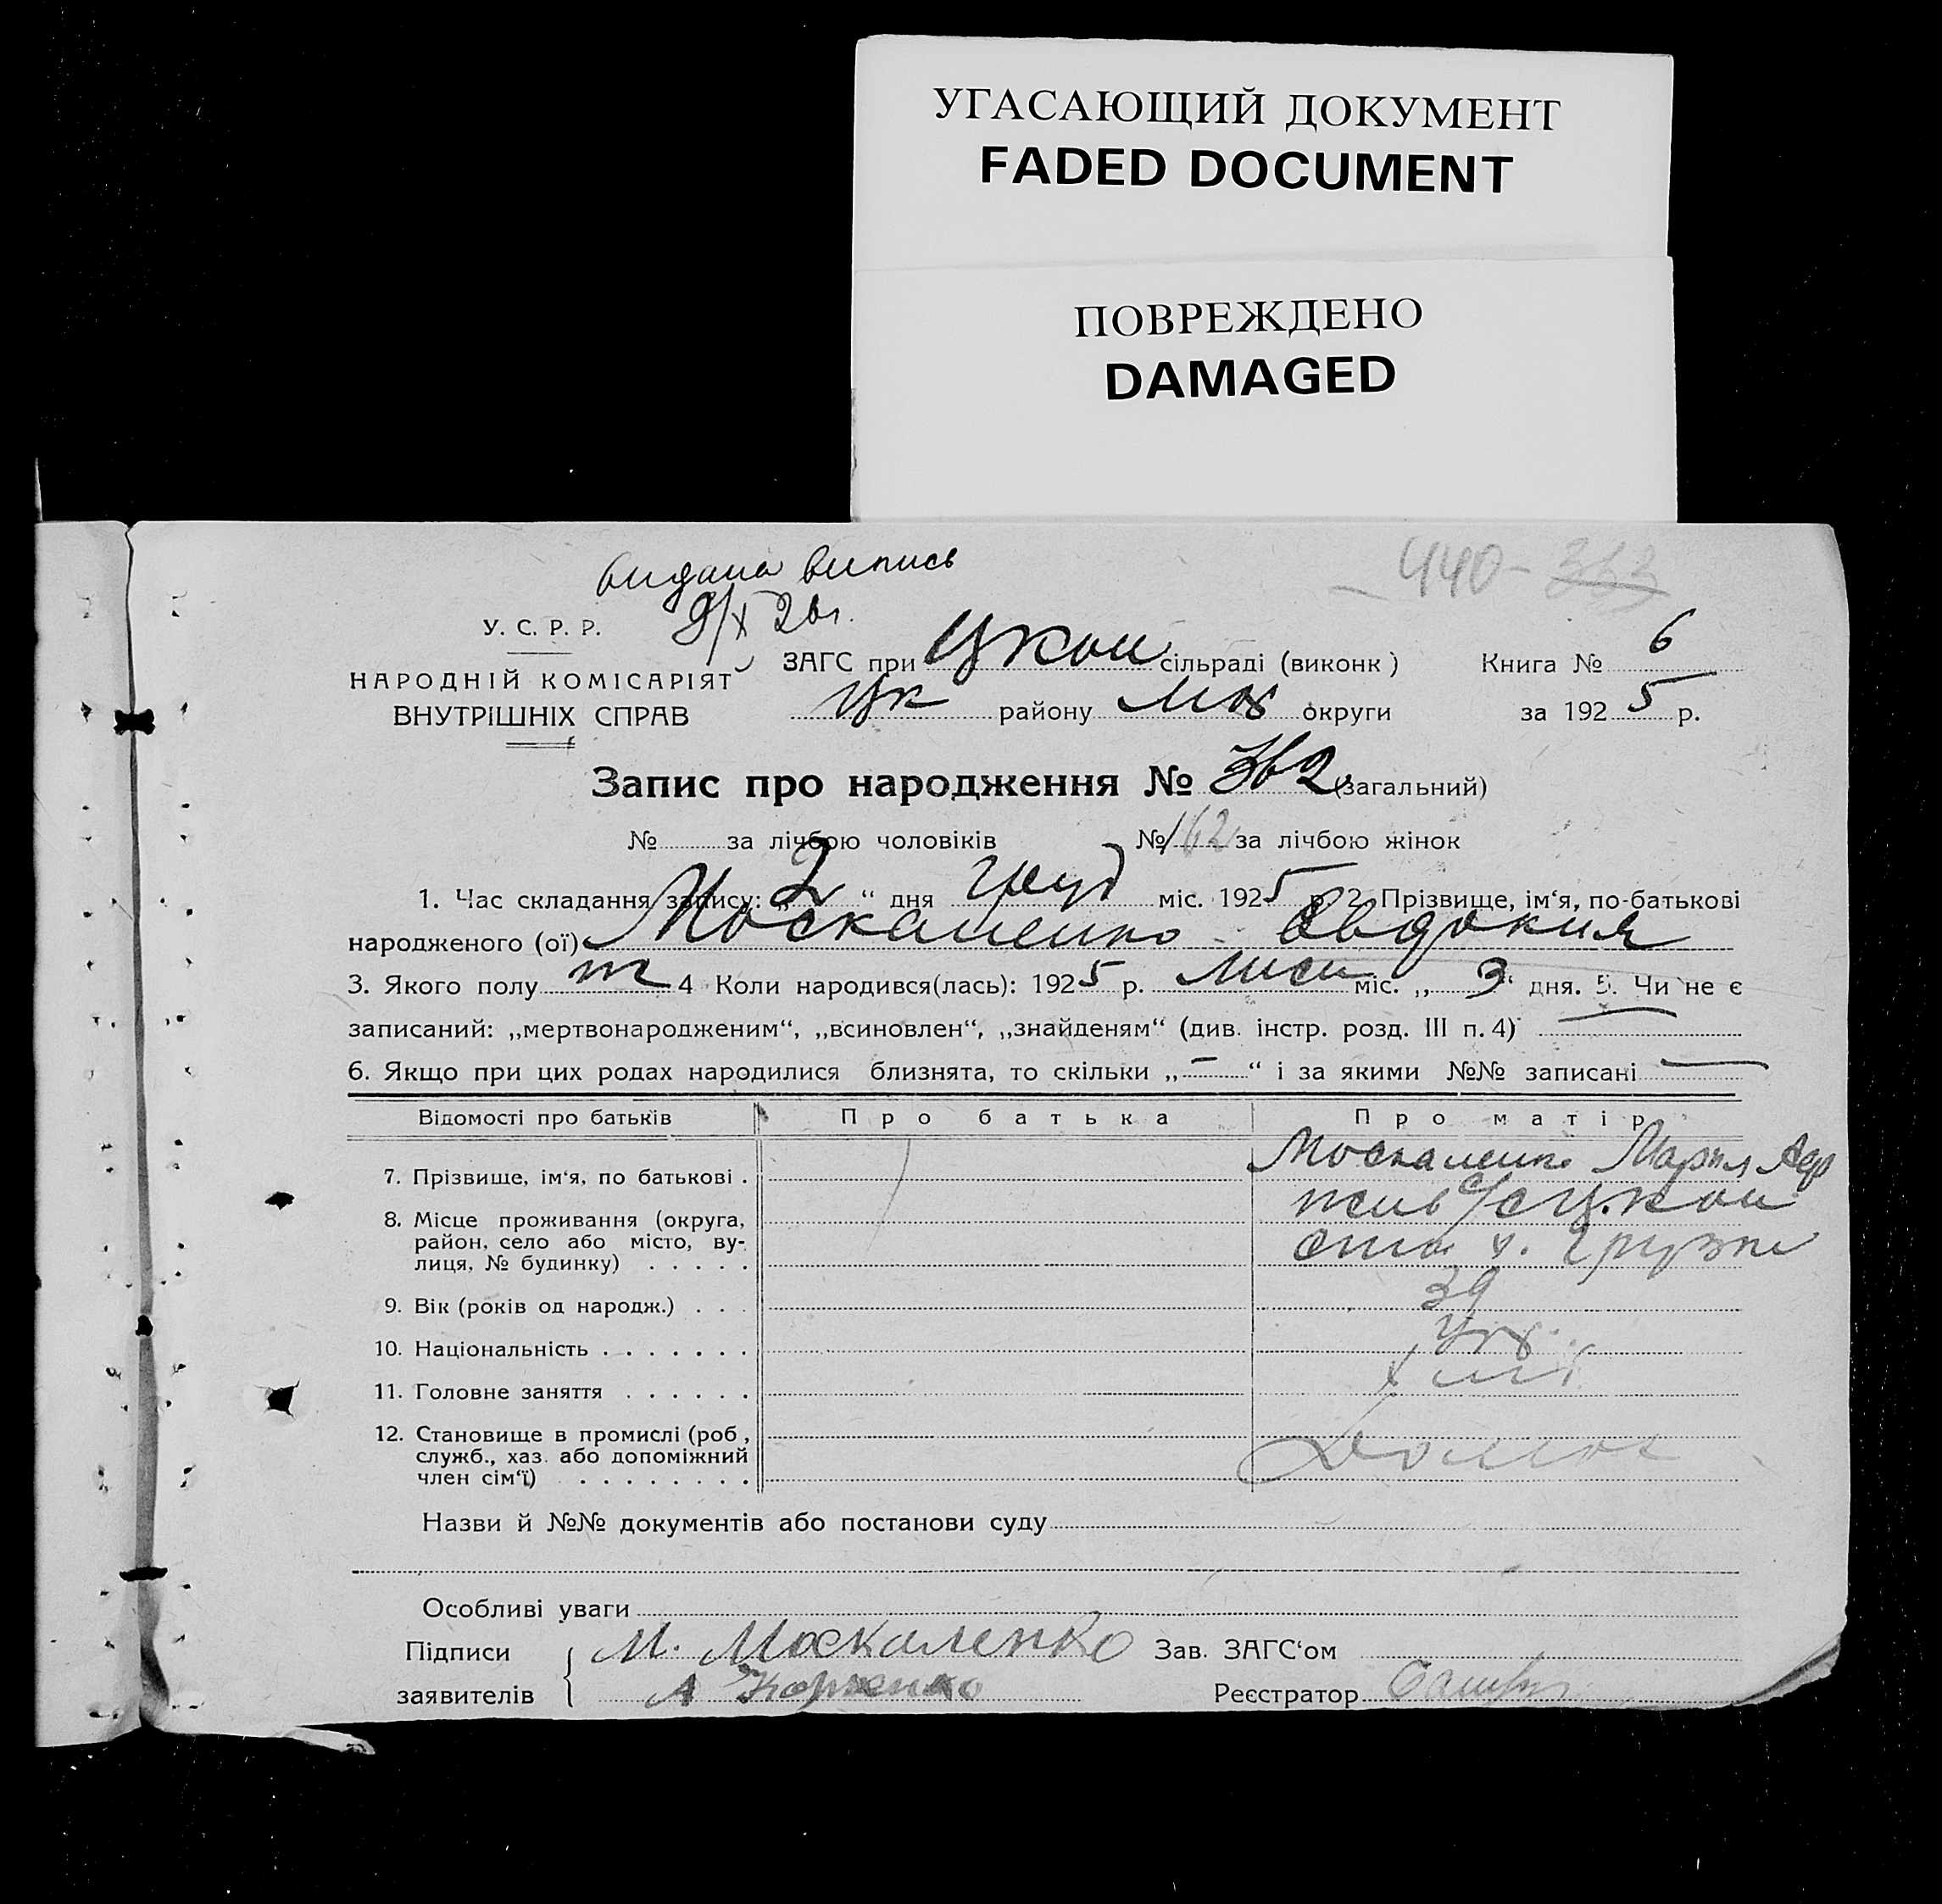 УГАСАЮЩИЙ ДОКУМЕНТ
FADED DOCUMENT
ПОВРЕЖДЕНО
DAMAGED
видана випись
440 - 363
У. С. Р. Р.
НАРОДНІЙ КОМІСАРІЯТ
ВНУТРІШНІХ СПРАВ
ЗАГС при Цкои сільраді (виконк) Книга № 6
Цк району округи за 1925 р.
Запис про народження № 362 (загальний)
№ за лічбою чоловіків № 162 за лічбою жінок
1. Час складання запису: „2“ дня груд міс. 1925 р. 2. Прізвище, ім‘я, по-батькові
народженого (ої) Москаленко Овдокия
3. Якого полу 4 Коли народився(лась): 1925 р. лист міс. „3“ дня. 5. Чи не є
записаний: „мертвонародженим“, „всиновлен“, „знайденям“ (див. інстр. розд. III п. 4) —
6. Якщо при цих родах народилися близнята, то скільки „—“ і за якими №№ записані —
Відомості про батьків Про батька Про матір
7. Прізвище, ім‘я, по батькові . Москаленко Мария
8. Місце проживання (округа,
район, село або місто, ву-
лиця, № будинку) . . . . .
9. Вік (років од народж.) . . . 39
10. Національність . . . . . . . Укр
11. Головне заняття . . . . . .
12. Становище в промислі (роб,
служб., хаз. або допоміжний
член сім‘ї) . . . . . . . .
Назви й №№ документів або постанови суду
Особливі уваги
Підписи М. Москаленко Зав. ЗАГС‘ом
заявителів А Корженко Реєстратор